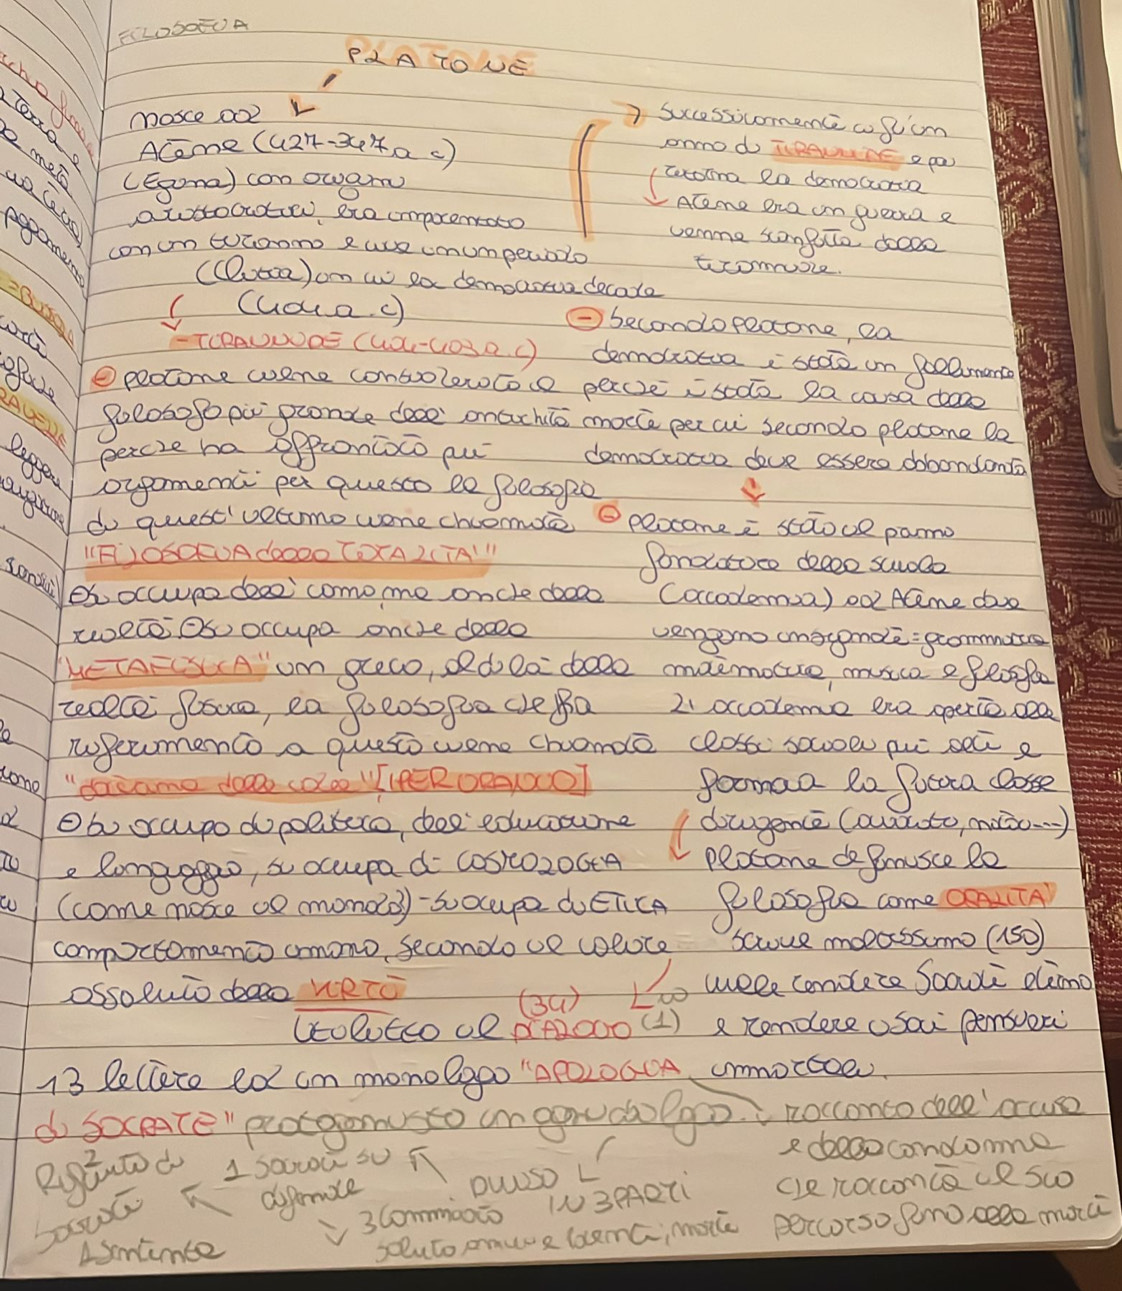 FILOSOFIA
PLATONE
nasce ad
Atene (427-347 a.c)
(Egina) con origini
aristocratici, era imparentato
con un tiranno e vive in un periodo
in cui la democrazia decade
(404 a.c)
- TIRANNIDE (404-403 a.c)
⊖ platone viene considerato il
filosofo più grande dell'antichità
perche ha affrontato più
argomenti per questo la filosofia
di quest'ultimo viene chiamata
"FILOSOFIA della TOTALITÀ"
⊖ si occupa dell'uomo, ma anche della
realtà ⊖ si occupa anche della
"METAFISICA" in greco, al di là della
realtà fisica, la filosofia che fa
riferimento a questo viene chiamata
[IPERURANIO]
⊖ si occupa di politica, dell'educazione
e linguaggio, si occupa di COSMOLOGIA
(come nasce il mondo) - si occupa di ETICA
comportamento umano, secondo il valore
assoluto della VIRTÙ
→ Successivamente ci fu un
anno di TIRANNIDE e poi
ritorna la democrazia
Atene era in guerra e
venne sconfitta dalla
⊖ Secondo platone, la
democrazia è stata un fallimento
perché è stata la causa della
morte per cui secondo platone la
democrazia deve essere abbandonata
⊖ platone è stato il primo
fondatore della scuola
(accademia) ad Atene dove
vengono insegnate: grammatica
matematica, musica e filosofia
L'accademia era aperta alla
classe sociale più alta e
formava la futura classe
dirigente
platone definisce la
filosofia come ORALITÀ
scrive moltissimo (150)
(34)
vuole rendere Socrate eterno
(1) e rendere i suoi pensieri
13 lettere ed un monologo "APOLOGIA immortali.
di SOCRATE" protagonista in ogni dialogo. racconto dell'accusa
e della condanna
Rifiuto di 1 Socrate si DIVISO
difende IN 3 PARTI che racconta il suo
Socrate 3 Commiato percorso fino alla morte
Astinente saluto amici e parenti; morte